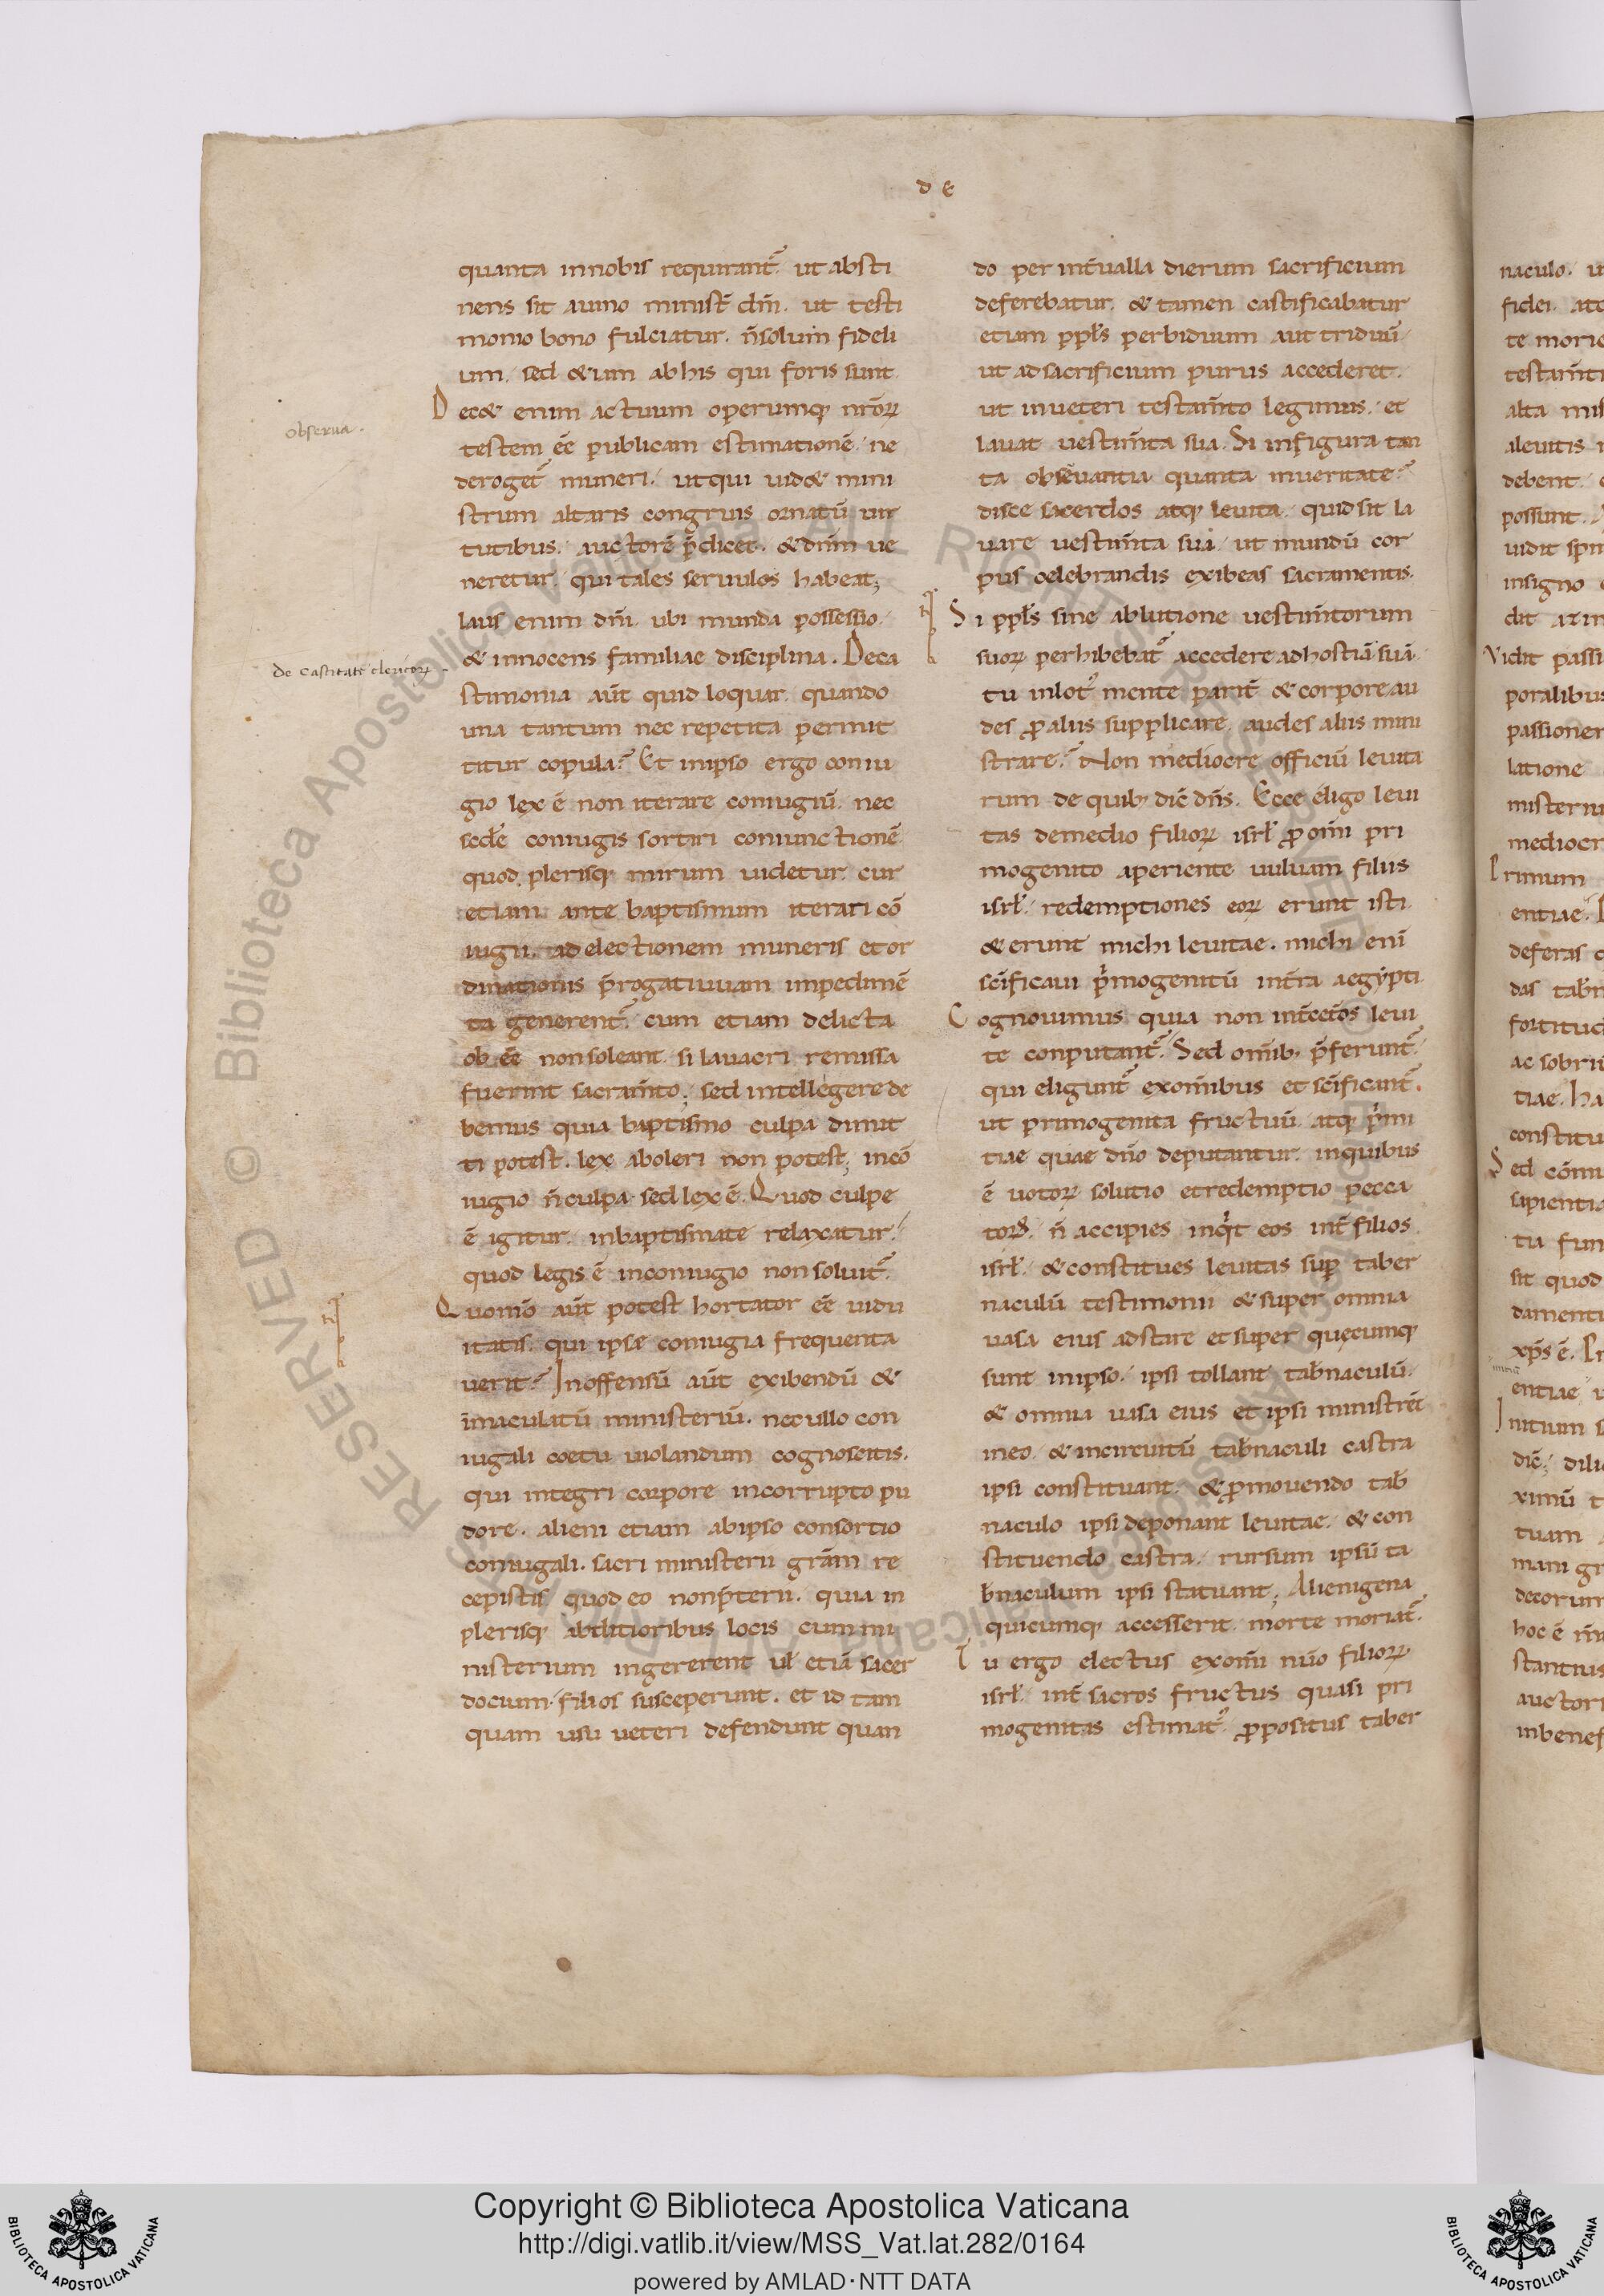 dƐ
quanta innobis requirant᷑ ut absti
nens sit auino minist̄ dn̄i. ut testi
monio bono fulciatur. n̄solum fideli
um. sed &iam abhis qui foris sunt.
Dec& enim actuum operumq; nr̄oꝝ
testem ēe publicam estimationē. ne
deroget᷑ muneri. ut qui uid& mini
strum altaris congruis ornatū uir
tutibus. auctorē p̄dicet. & dn̄m ue
neretur. qui tales seruulos habeat;
laus enim dn̄i. ubi munda possessio.
& innocens familiae disciplina. Deca
stimonia aūt quid loquar. quando
una tantum nec repetita permit
titur copula? Et inipso ergo coniu
gio lex ē non iterare coniugiū. nec
sc̄dae coniugis sortiri coniunctionē.
quod plerisq; mirum uidetur. cur
etiam ante baptismum iterati cō
iugii. ad electionem muneris et or
dinationis p̄rogatiuuam impedimē
ta generent᷑. cum etiam delicta
ob ēe nonsoleant. si lauacri remissa
fuerint sacram̄to; sed intellegere de
bemus quia baptismo culpa dimit
ti potest. lex aboleri non potest; incō
iugio n̄culpa sed lex ē. Quod culpe
ē igitur. inbaptismate relaxatur.
quod legis ē inconiugio non soluit᷑.
Quom̄o aūt potest hortator ēe uidu
itatis. qui ipse coniugia frequenta
uerit? Inoffensū aūt exibendū &
īmaculatū ministeriū. nec ullo con
iugali coetu uiolandum cognoscitis.
qui integri corpore incorrupto pu
dore. alieni etiam abipso consortio
coniugali. sacri ministerii gr̄am re
cepistis. quod eo nonp̄terii. quia in
plerisq; abditioribus locis cum mi
nisterium ingererent ul̄ etiā sacer
docium. filios susceperunt. et id tam
quam usu ueteri defendunt quan
obserua.
de castitate clericoꝝ
do per int̄ualla dierum sacrificium
deferebatur. & tamen castificabatur
etiam ppl̄s perbiduum aut triduū
ut adsacrificium purus accederet.
ut inueteri testam̄to legimus. et
lauat uestim̄ta sua. Si infigura tan
ta obseruantia quanta inueritate?
disce sacerdos atq; leuita. quid sit la
uare uestim̄ta sua. ut mundū cor
pus celebrandis exibeas sacramentis.
Si ppl̄s sine ablutione uestim̄torum
suoꝝ perhibebat᷑ accedere adhostiā suā.
tu inlot᷑ mente parit̄ & corpore au
des ꝓaliis supplicare. audes aliis mini
strare? Non mediocre officiū leuita
rum de quib; dic̄ dn̄s. Ecce eligo leui
tas demedio filioꝝ isrl̄ ꝓom̄i pri
mogenito aperiente uuluam filiis
isrl̄. redemptiones eoꝝ erunt isti
& erunt michi leuitae. michi enī
sc̄ificaui p̄mogenitū int̄ra aegypti
Cognouimus quia non int̄cet̄os leui
te conputant᷑. Sed om̄ib; p̄ferunt᷑
qui eligunt᷑ exom̄ibus et sc̄ificant᷑.
ut primogenita fructuū atq; p̄mi
tiae quae dn̄o deputantur. inquibus
ē uotoꝝ solutio et redemptio pecca
toꝝ. n̄ accipies inq̄t eos int̄ filios
isrl̄. & constitues leuitas sup̄ taber
naculū testimonii & super omnia
uasa eius adstare et super quęcumq;
sunt inipso. ipsi tollant tab̄naculū.
& omnia uasa eius et ipsi ministrēt
ineo. & incircuitū tab̄naculi castra
ipsi constituant. & ꝓmouendo tab̄
naculo ipsi deponant leuitae. & con
stituendo castra. rursum ipsū ta
b̄naculum ipsi statuant; Alienigena
quicumq; accesserit. morte moriat᷑.
Tu ergo electus exom̄i num̄o filioꝝ
isrl̄. int̄ sacros fructus quasi pri
mogenitas estimat᷑. ꝓpositus taber
naculo. u
fidei. atq
te morie
testam̄ti
alta mis
aleuitis
debent.
possunt.
uidit
insigno
dit
Vidit passi
poralibus
passioner
latione
misteriu
mediocr
Primum
entiae.
deferas
das tab̄n
fortitud
ac sobri
tiae. ha
constitu
Sed
sapientia
tia fun
sit quod
damenti
xp̄s ē.
entiae
Initium
dic̄;
ximū
tuam
mani
decorum
hoc ē
stantius
auctori
inbenef
RESERVED © Biblioteca Apostolica Vaticana ALL RIGHTS RESERVED © Biblioteca Apostolica Vaticana ALL RIGHTS
Copyright © Biblioteca Apostolica Vaticana
http://digi.vatlib.it/view/MSS_Vat.lat.282/0164
powered by AMLAD·NTT DATA
BIBLIOTECA APOSTOLICA VATICANA
BIBLIOTECA APOSTOLICA VATICANA